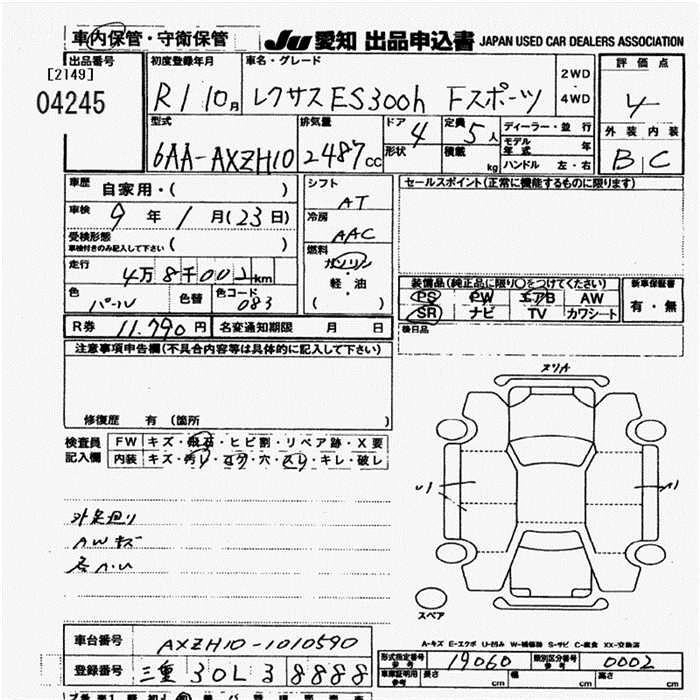 車内保管・守衛保管
JU 愛知 出品申込書 JAPAN USED CAR DEALERS ASSOCIATION
出品番号
[2149]
04245
初度登録年月
R1 10月
車名・グレード
レクサス ES300h Fスポーツ
2WD
4WD
評価点
4
外装 内装
B C
型式
6AA-AXZH10
排気量
2487cc
ドア 4
形状
定員 5人
積載 kg
ディーラー・並行
モデル年式 年
ハンドル 左・右
車歴 自家用・( )
車検 9年 1月(23日)
受検形態 ( )
車検付きのみ記入して下さい
走行 4万8千001km
色 パール 色替 色コード 083
R券 11,790円 名変通知期限 月 日
シフト
AT
冷房
AAC
燃料
ガソリン
・
軽・油
( )
セールスポイント(正常に機能するものに限ります)
装備品(純正品に限り○をつけてください)
PS PW エアB AW
SR ナビ TV カワシート
新車保証書
有・無
後日品
注意事項申告欄(不具合内容等は具体的に記入して下さい)
修復歴 有 (箇所
検査員記入欄
FW キズ・飛石・ヒビ割・リペア跡・X要
内装 キズ・汚れ・コゲ・穴・スレ・キレ・破レ
AWキズ
スペア
A-キズ E-エクボ U-凹み W-補修跡 S-サビ C-腐食 XX-交換済
車台番号 AXZH10-1010590
登録番号 三重 30L る 8888
形式指定番号 参考 19060 類別区分番号 参考 0002
車庫証明用 参考 長さ cm 幅 cm 高さ cm